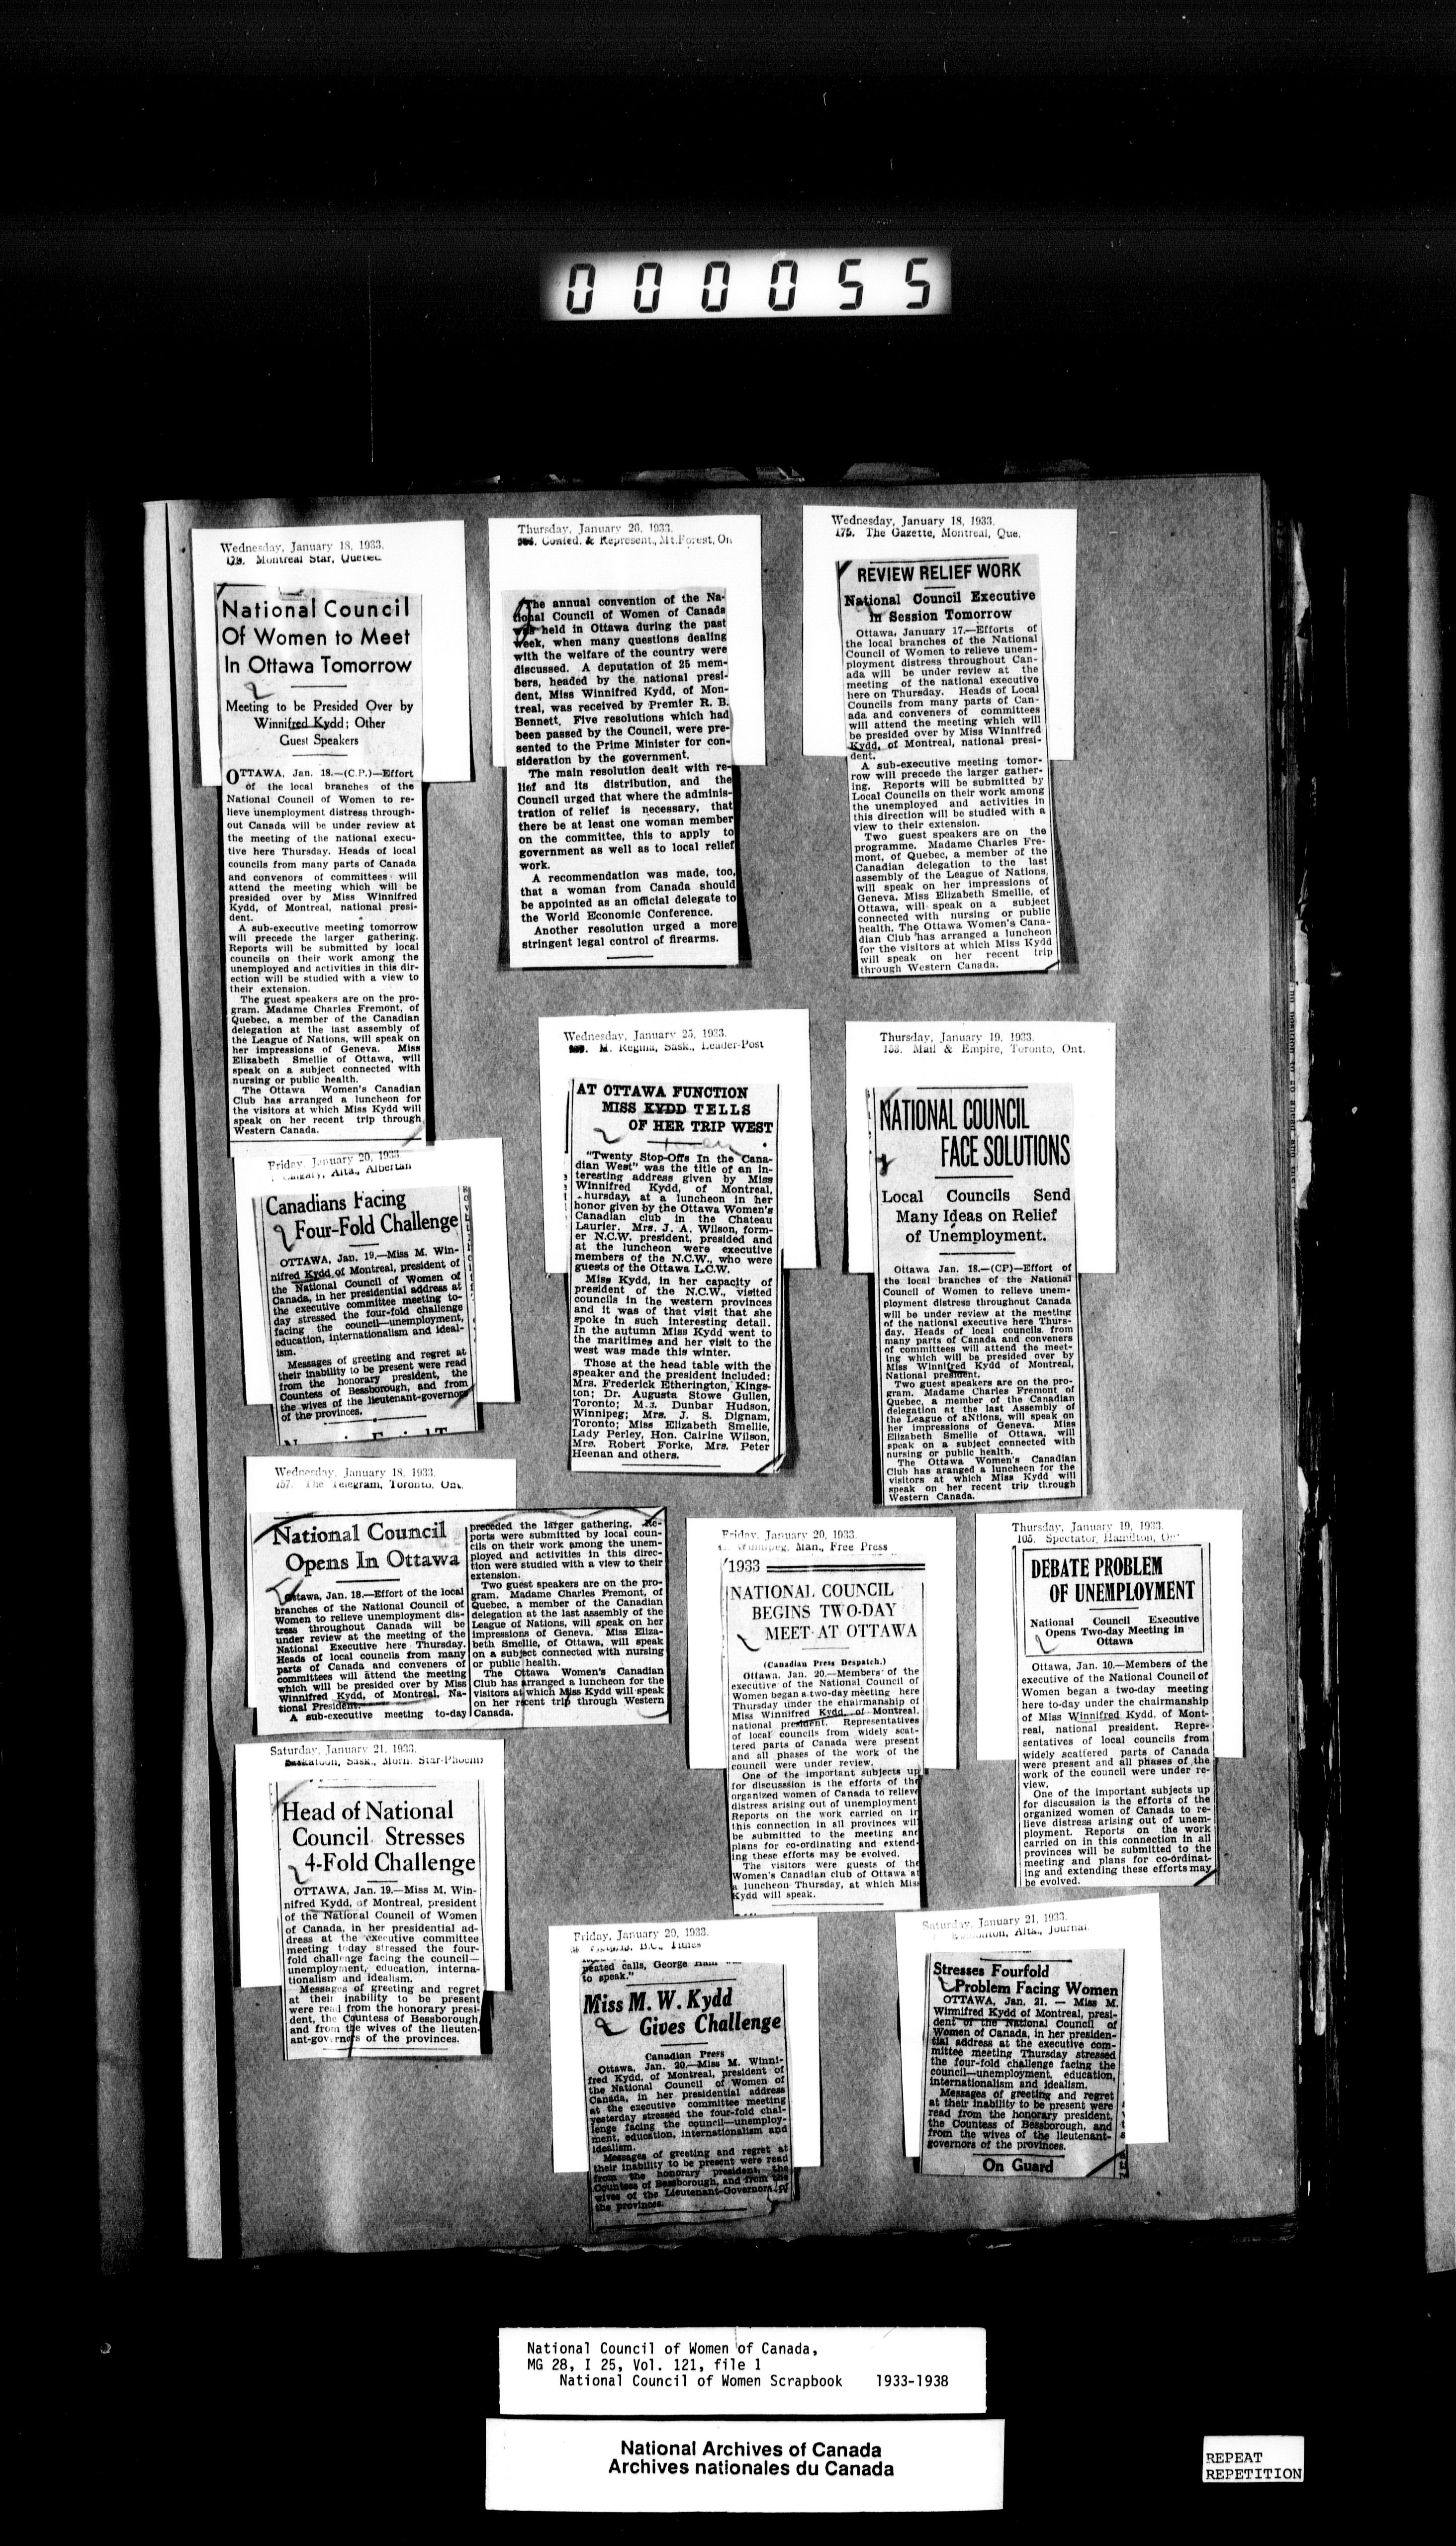 000055
Wednesday, January 18, 1933.
Montreal Star, Quebec
National Council
Of Women to Meet
In Ottawa Tomorrow
Meeting to be Presided Over by
Winnifred Kydd; Other
Guest Speakers
OTTAWA, Jan. 18.—(C.P.)—Effort
of the local branches of the
National Council of Women to re-
lieve unemployment distress through-
out Canada will be under review at
the meeting of the national execu-
tive here Thursday. Heads of local
councils from many parts of Canada
and convenors of committees will
attend the meeting which will be
presided over by Miss Winnifred
Kydd, of Montreal, national presi-
dent.
A sub-executive meeting tomorrow
will precede the larger gathering.
Reports will be submitted by local
councils on their work among the
unemployed and activities in this dir-
ection will be studied with a view to
their extension.
The guest speakers are on the pro-
gram. Madame Charles Fremont, of
Quebec, a member of the Canadian
delegation at the last assembly of
the League of Nations, will speak on
her impressions of Geneva. Miss
Elizabeth Smellie of Ottawa, will
speak on a subject connected with
nursing or public health.
The Ottawa Women's Canadian
Club has arranged a luncheon for
the visitors at which Miss Kydd will
speak on her recent trip through
Western Canada.
Thursday, January 26, 1933.
Confed. & Represent., Mt.Forest, On
The annual convention of the Na-
tional Council of Women of Canada
was held in Ottawa during the past
week, when many questions dealing
with the welfare of the country were
discussed. A deputation of 25 mem-
bers, headed by the national presi-
dent, Miss Winnifred Kydd, of Mon-
treal, was received by Premier R. B.
Bennett. Five resolutions which had
been passed by the Council, were pre-
sented to the Prime Minister for con-
sideration by the government.
The main resolution dealt with re-
lief and its distribution, and the
Council urged that where the adminis-
tration of relief is necessary, that
there be at least one woman member
on the committee, this to apply to
government as well as to local relief
work.
A recommendation was made, too,
that a woman from Canada should
be appointed as an official delegate to
the World Economic Conference.
Another resolution urged a more
stringent legal control of firearms.
Wednesday, January 18, 1933.
175. The Gazette, Montreal, Que.
REVIEW RELIEF WORK
National Council Executive
in Session Tomorrow
Ottawa, January 17.—Efforts of
the local branches of the National
Council of Women to relieve unem-
ployment distress throughout Can-
ada will be under review at the
meeting of the national executive
here on Thursday. Heads of Local
Councils from many parts of Can-
ada and conveners of committees
will attend the meeting which will
be presided over by Miss Winnifred
Kydd, of Montreal, national presi-
dent.
A sub-executive meeting tomor-
row will precede the larger gather-
ing. Reports will be submitted by
Local Councils on their work among
the unemployed and activities in
this direction will be studied with a
view to their extension.
Two guest speakers are on the
programme. Madame Charles Fre-
mont, of Quebec, a member of the
Canadian delegation to the last
assembly of the League of Nations,
will speak on her impressions of
Geneva. Miss Elizabeth Smellie, of
Ottawa, will speak on a subject
connected with nursing or public
health. The Ottawa Women's Cana-
dian Club has arranged a luncheon
for the visitors at which Miss Kydd
will speak on her recent trip
through Western Canada.
Wednesday, January 25, 1933.
M. Regina, Sask., Leader-Post
AT OTTAWA FUNCTION
MISS KYDD TELLS
OF HER TRIP WEST
"Twenty Stop-Offs In the Cana-
dian West" was the title of an in-
teresting address given by Miss
Winnifred Kydd, of Montreal,
hursday, at a luncheon in her
honor given by the Ottawa Women's
Canadian club in the Chateau
Laurier. Mrs. J. A. Wilson, form-
er N.C.W. president, presided and
at the luncheon were executive
members of the N.C.W., who were
guests of the Ottawa L.C.W.
Miss Kydd, in her capacity of
president of the N.C.W., visited
councils in the western provinces
and it was of that visit that she
spoke in such interesting detail.
In the autumn Miss Kydd went to
the maritimes and her visit to the
west was made this winter.
Those at the head table with the
speaker and the president included:
Mrs. Frederick Etherington, Kings-
ton; Dr. Augusta Stowe Gullen,
Toronto; Dunbar Hudson,
Winnipeg; Mrs. J. S. Dignam,
Toronto; Miss Elizabeth Smellie,
Lady Perley, Hon. Cairine Wilson,
Mrs. Robert Forke, Mrs. Peter
Heenan and others.
Thursday, January 19, 1933.
Mail & Empire, Toronto, Ont.
NATIONAL COUNCIL
FACE SOLUTIONS
Local Councils Send
Many Ideas on Relief
of Unemployment.
Ottawa Jan. 18.—(CP)—Effort of
the local branches of the National
Council of Women to relieve unem-
ployment distress throughout Canada
will be under review at the meeting
of the national executive here Thurs-
day. Heads of local councils from
many parts of Canada and conveners
of committees will attend the meet-
ing which will be presided over by
Miss Winnifred Kydd of Montreal,
National president.
Two guest speakers are on the pro-
gram. Madame Charles Fremont of
Quebec, a member of the Canadian
delegation at the last Assembly of
the League of aNtions, will speak on
her impressions of Geneva. Miss
Elizabeth Smellie of Ottawa, will
speak on a subject connected with
nursing or public health.
The Ottawa Women's Canadian
Club has aranged a luncheon for the
visitors at which Miss Kydd will
speak on her recent trip through
Western Canada.
Friday, January 20, 1933.
Calgary, Alta., Albertan
Canadians Facing
Four-Fold Challenge
OTTAWA, Jan. 19.—Miss M. Win-
nifred Kydd, of Montreal, president of
the National Council of Women of
Canada, in her presidential address at
the executive committee meeting to-
day stressed the four-fold challenge
facing the council—unemployment,
education, internationalism and ideal-
ism.
Messages of greeting and regret at
their inability to be present were read
from the honorary president, the
Countess of Bessborough, and from
the wives of the lieutenant-governors
of the provinces.
Wednesday, January 18, 1933.
157. The Telegram, Toronto, Ont.
National Council
Opens In Ottawa
Ottawa, Jan. 18.—Effort of the local
branches of the National Council of
Women to relieve unemployment dis-
tress throughout Canada will be
under review at the meeting of the
National Executive here Thursday.
Heads of local councils from many
parts of Canada and conveners of
committees will attend the meeting
which will be presided over by Miss
Winnifred Kydd, of Montreal, Na-
tional President.
A sub-executive meeting to-day
preceded the larger gathering. Re-
ports were submitted by local coun-
cils on their work among the unem-
ployed and activities in this direc-
tion were studied with a view to their
extension.
Two guest speakers are on the pro-
gram. Madame Charles Fremont, of
Quebec, a member of the Canadian
delegation at the last assembly of the
League of Nations, will speak on her
impressions of Geneva. Miss Eliza-
beth Smellie, of Ottawa, will speak
on a subject connected with nursing
or public health.
The Ottawa Women's Canadian
Club has arranged a luncheon for the
visitors at which Miss Kydd will speak
on her recent trip through Western
Canada.
Friday, January 20, 1933.
Winnipeg, Man., Free Press
1933
NATIONAL COUNCIL
BEGINS TWO-DAY
MEET AT OTTAWA
(Canadian Press Despatch.)
Ottawa, Jan. 20.—Members of the
executive of the National Council of
Women began a two-day meeting here
Thursday under the chairmanship of
Miss Winnifred Kydd, of Montreal,
national president. Representatives
of local councils from widely scat-
tered parts of Canada were present
and all phases of the work of the
council were under review.
One of the important subjects up
for discusssion is the efforts of the
organized women of Canada to relieve
distress arising out of unemployment
Reports on the work carried on in
this connection in all provinces will
be submitted to the meeting and
plans for co-ordinating and extend-
ing these efforts may be evolved.
The visitors were guests of the
Women's Canadian club of Ottawa at
a luncheon Thursday, at which Miss
Kydd will speak.
Thursday, January 19, 1933.
105. Spectator, Hamilton, On
DEBATE PROBLEM
OF UNEMPLOYMENT
National Council Executive
Opens Two-day Meeting in
Ottawa
Ottawa, Jan. 10.—Members of the
executive of the National Council of
Women began a two-day meeting
here to-day under the chairmanship
of Miss Winnifred Kydd, of Mont-
real, national president. Repre-
sentatives of local councils from
widely scattered parts of Canada
were present and all phases of the
work of the council were under re-
view.
One of the important subjects up
for discussion is the efforts of the
organized women of Canada to re-
lieve distress arising out of unem-
ployment. Reports on the work
carried on in this connection in all
provinces will be submitted to the
meeting and plans for co-ordinat-
ing and extending these efforts may
be evolved.
Saturday, January 21, 1933.
Saskatoon, Sask., Morn. Star-Phoenix
Head of National
Council Stresses
4-Fold Challenge
OTTAWA, Jan. 19.—Miss M. Win-
nifred Kydd, of Montreal, president
of the National Council of Women
of Canada, in her presidential ad-
dress at the executive committee
meeting today stressed the four-
fold challenge facing the council—
unemployment, education, interna-
tionalism and idealism.
Messages of greeting and regret
at their inability to be present
were read from the honorary presi-
dent, the Countess of Bessborough,
and from the wives of the lieuten-
ant-governors of the provinces.
Friday, January 20, 1933.
Victoria, B.C., Times
peated calls, George
to speak."
Miss M. W. Kydd
Gives Challenge
Canadian Press
Ottawa, Jan. 20.—Miss M. Winni-
fred Kydd, of Montreal, president of
the National Council of Women of
Canada, in her presidential address
at the executive committee meeting
yesterday stressed the four-fold chal-
lenge facing the council—unemploy-
ment, education, internationalism and
idealism.
Messages of greeting and regret at
their inability to be present were read
from the honorary president, the
Countess of Bessborough, and from the
wives of the Lieutenant-Governors of
the provinces.
Saturday, January 21, 1933.
Edmonton, Alta., Journal
Stresses Fourfold
Problem Facing Women
OTTAWA, Jan. 21. — Miss M.
Winnifred Kydd of Montreal, presi-
dent of the National Council of
Women of Canada, in her presiden-
tial address at the executive com-
mittee meeting Thursday stressed
the four-fold challenge facing the
council—unemployment, education,
internationalism and idealism.
Messages of greeting and regret
at their inability to be present were
read from the honorary president,
the Countess of Bessborough, and
from the wives of the lieutenant-
governors of the provinces.
On Guard
National Council of Women of Canada,
MG 28, I 25, Vol. 121, file 1
National Council of Women Scrapbook 1933-1938
National Archives of Canada
Archives nationales du Canada
REPEAT
REPETITION